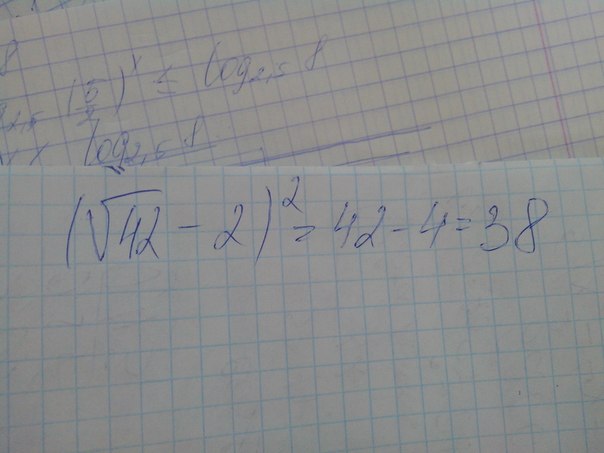 8
(5/2)^x ≤ log_{2,5} 8
log_{2,5} 8
(√42 - 2)^2 = 42 - 4 = 38